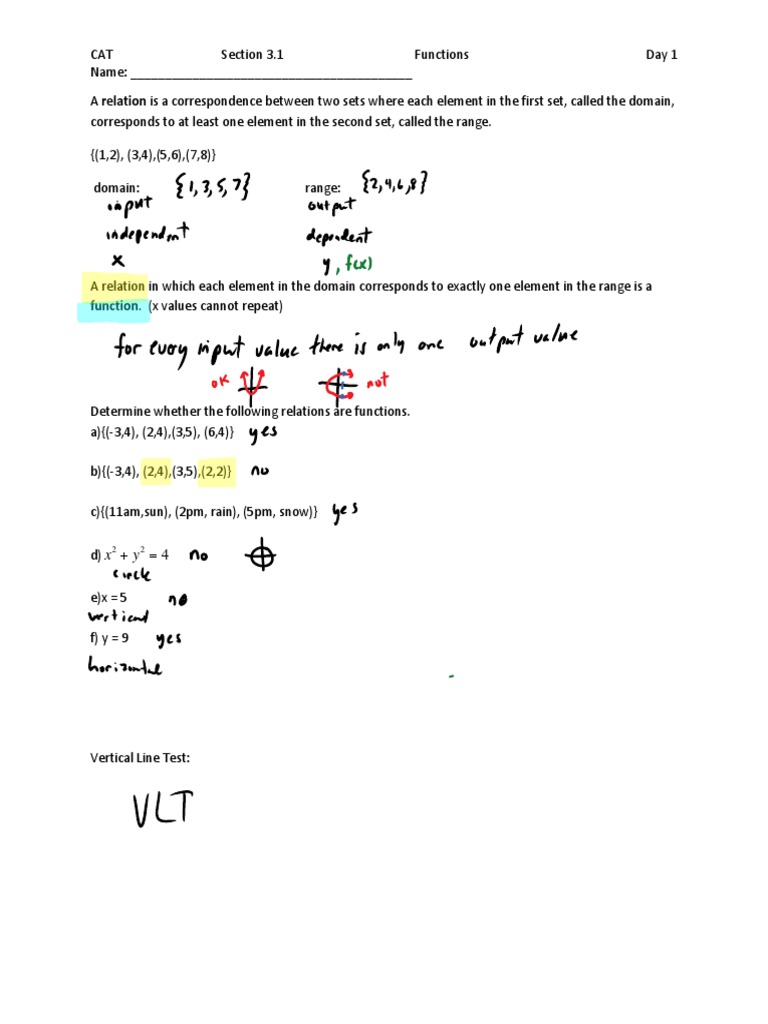 CAT Section 3.1 Functions Day 1
Name: ________________________________________
A relation is a correspondence between two sets where each element in the first set, called the domain,
corresponds to at least one element in the second set, called the range.
{(1,2), (3,4),(5,6),(7,8)}
domain: {1,3,5,7} range: {2,4,6,8}
input output
independent dependent
x y, f(x)
A relation in which each element in the domain corresponds to exactly one element in the range is a
function. (x values cannot repeat)
for every input value there is only one output value
OK not
Determine whether the following relations are functions.
a){(-3,4), (2,4),(3,5), (6,4)} yes
b){(-3,4), (2,4),(3,5),(2,2)} no
c){(11am,sun), (2pm, rain), (5pm, snow)} yes
d) x² + y² = 4 no
circle
e)x = 5 no
vertical
f) y = 9 yes
horizontal
Vertical Line Test:
VLT